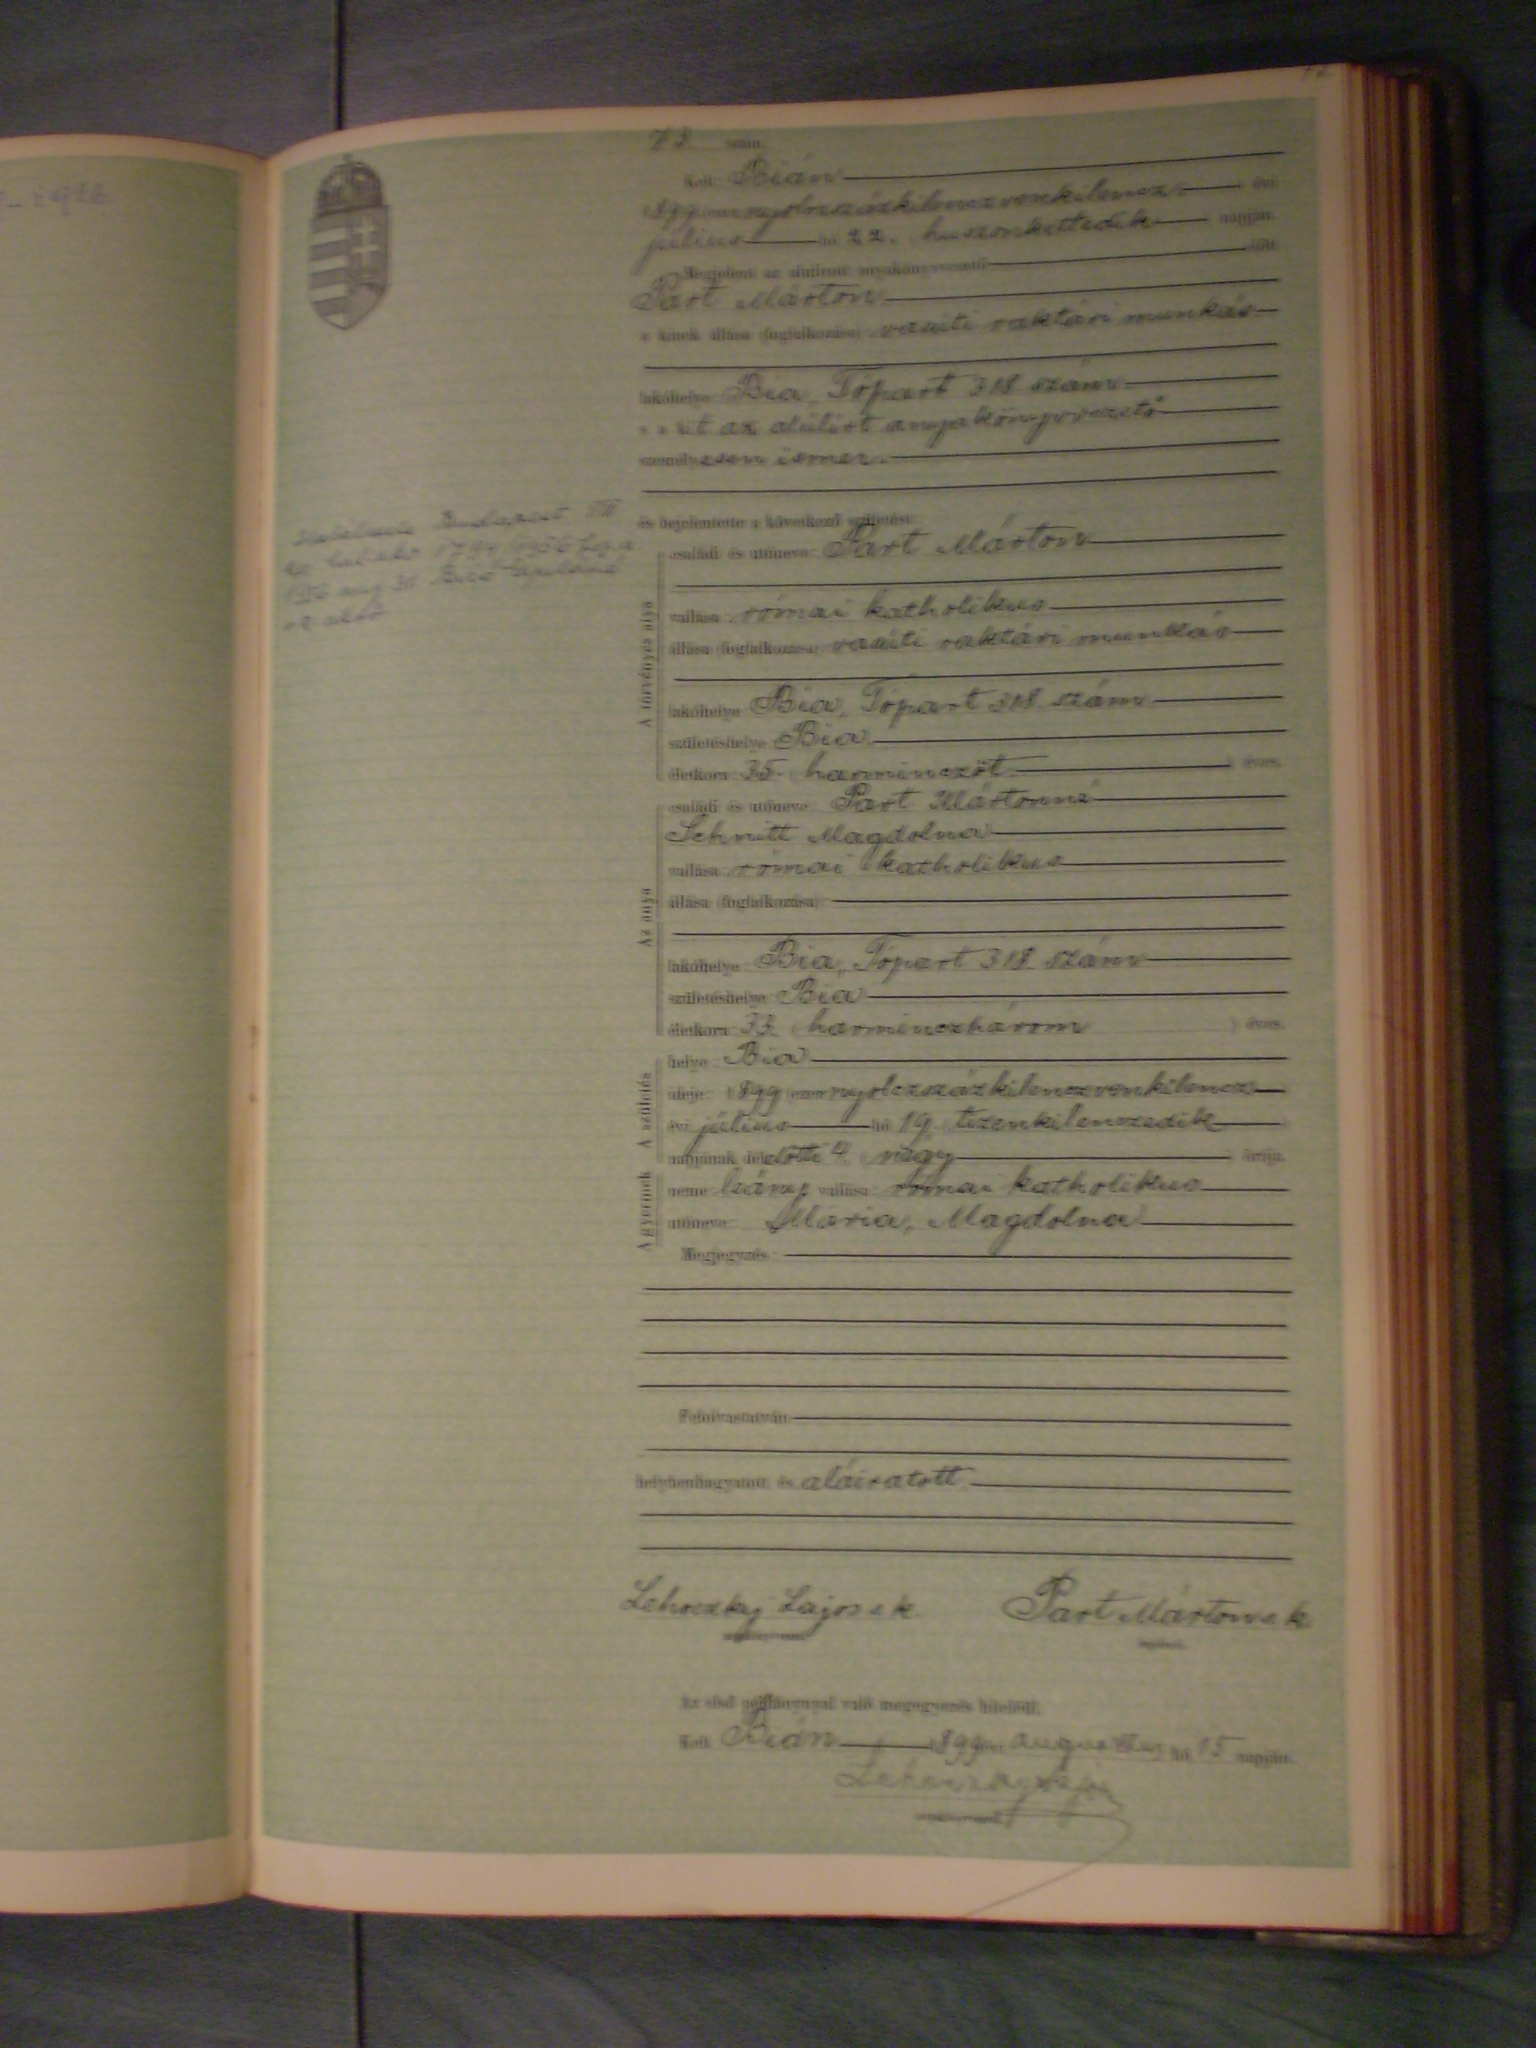 73 szám.
Kelt Bián
1899 ezer nyolczszázkilenczvenkilencz évi
július hó 22. huszonkettedik napján.
Megjelent az alulirott anyakönyvvezető előtt
Part Márton
a kinek állása (foglalkozása) vasúti raktári munkás
lakóhelye Bia, Tópart 318 szám
s a kit az alulirt anyakönyvvezető
személyesen ismer.
és bejelentette a következő születést:
A törvényes atya
családi és utóneve: Part Márton
vallása: római katholikus
állása (foglalkozása) vasúti raktári munkás
lakóhelye Bia, Tópart 318. szám
születéshelye Bia
életkora 35. harminczöt éves.
Az anya
családi és utóneve: Part Mártonné
Schmitt Magdolna
vallása római katholikus
állása (foglalkozása)
lakóhelye: Bia, Tópart 318 szám
születéshelye Bia
életkora 33 (harminczhárom) éves.
A születés
helye: Bia
ideje: 1899 (ezer nyolczszázkilenczvenkilencz
évi július hó 19. tizenkilenczedik
napjának délelőtti 4 négy órája.
A gyermek
neme: leány vallása: római katholikus
utóneve: Mária, Magdolna
Megjegyzés:
Felolvastatván
helybenhagyatott és aláiratott
Lehoczky Lajos s k. Part Márton s k
Az első példánynyal való megegyezés hiteléül.
Kelt Bián 1899 évi augusztus hó 15 napján.
Lehoczky Lajos
Budapest VIII
1956 aug 31